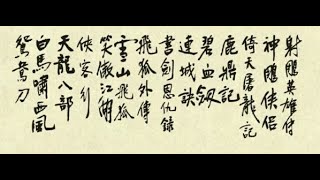 射鵰英雄傳
神鵰俠侶
倚天屠龍記
鹿鼎記
碧血劍
連城訣
書劍恩仇錄
飛狐外傳
雪山飛狐
笑傲江湖
俠客行
天龍八部
白馬嘯西風
鴛鴦刀